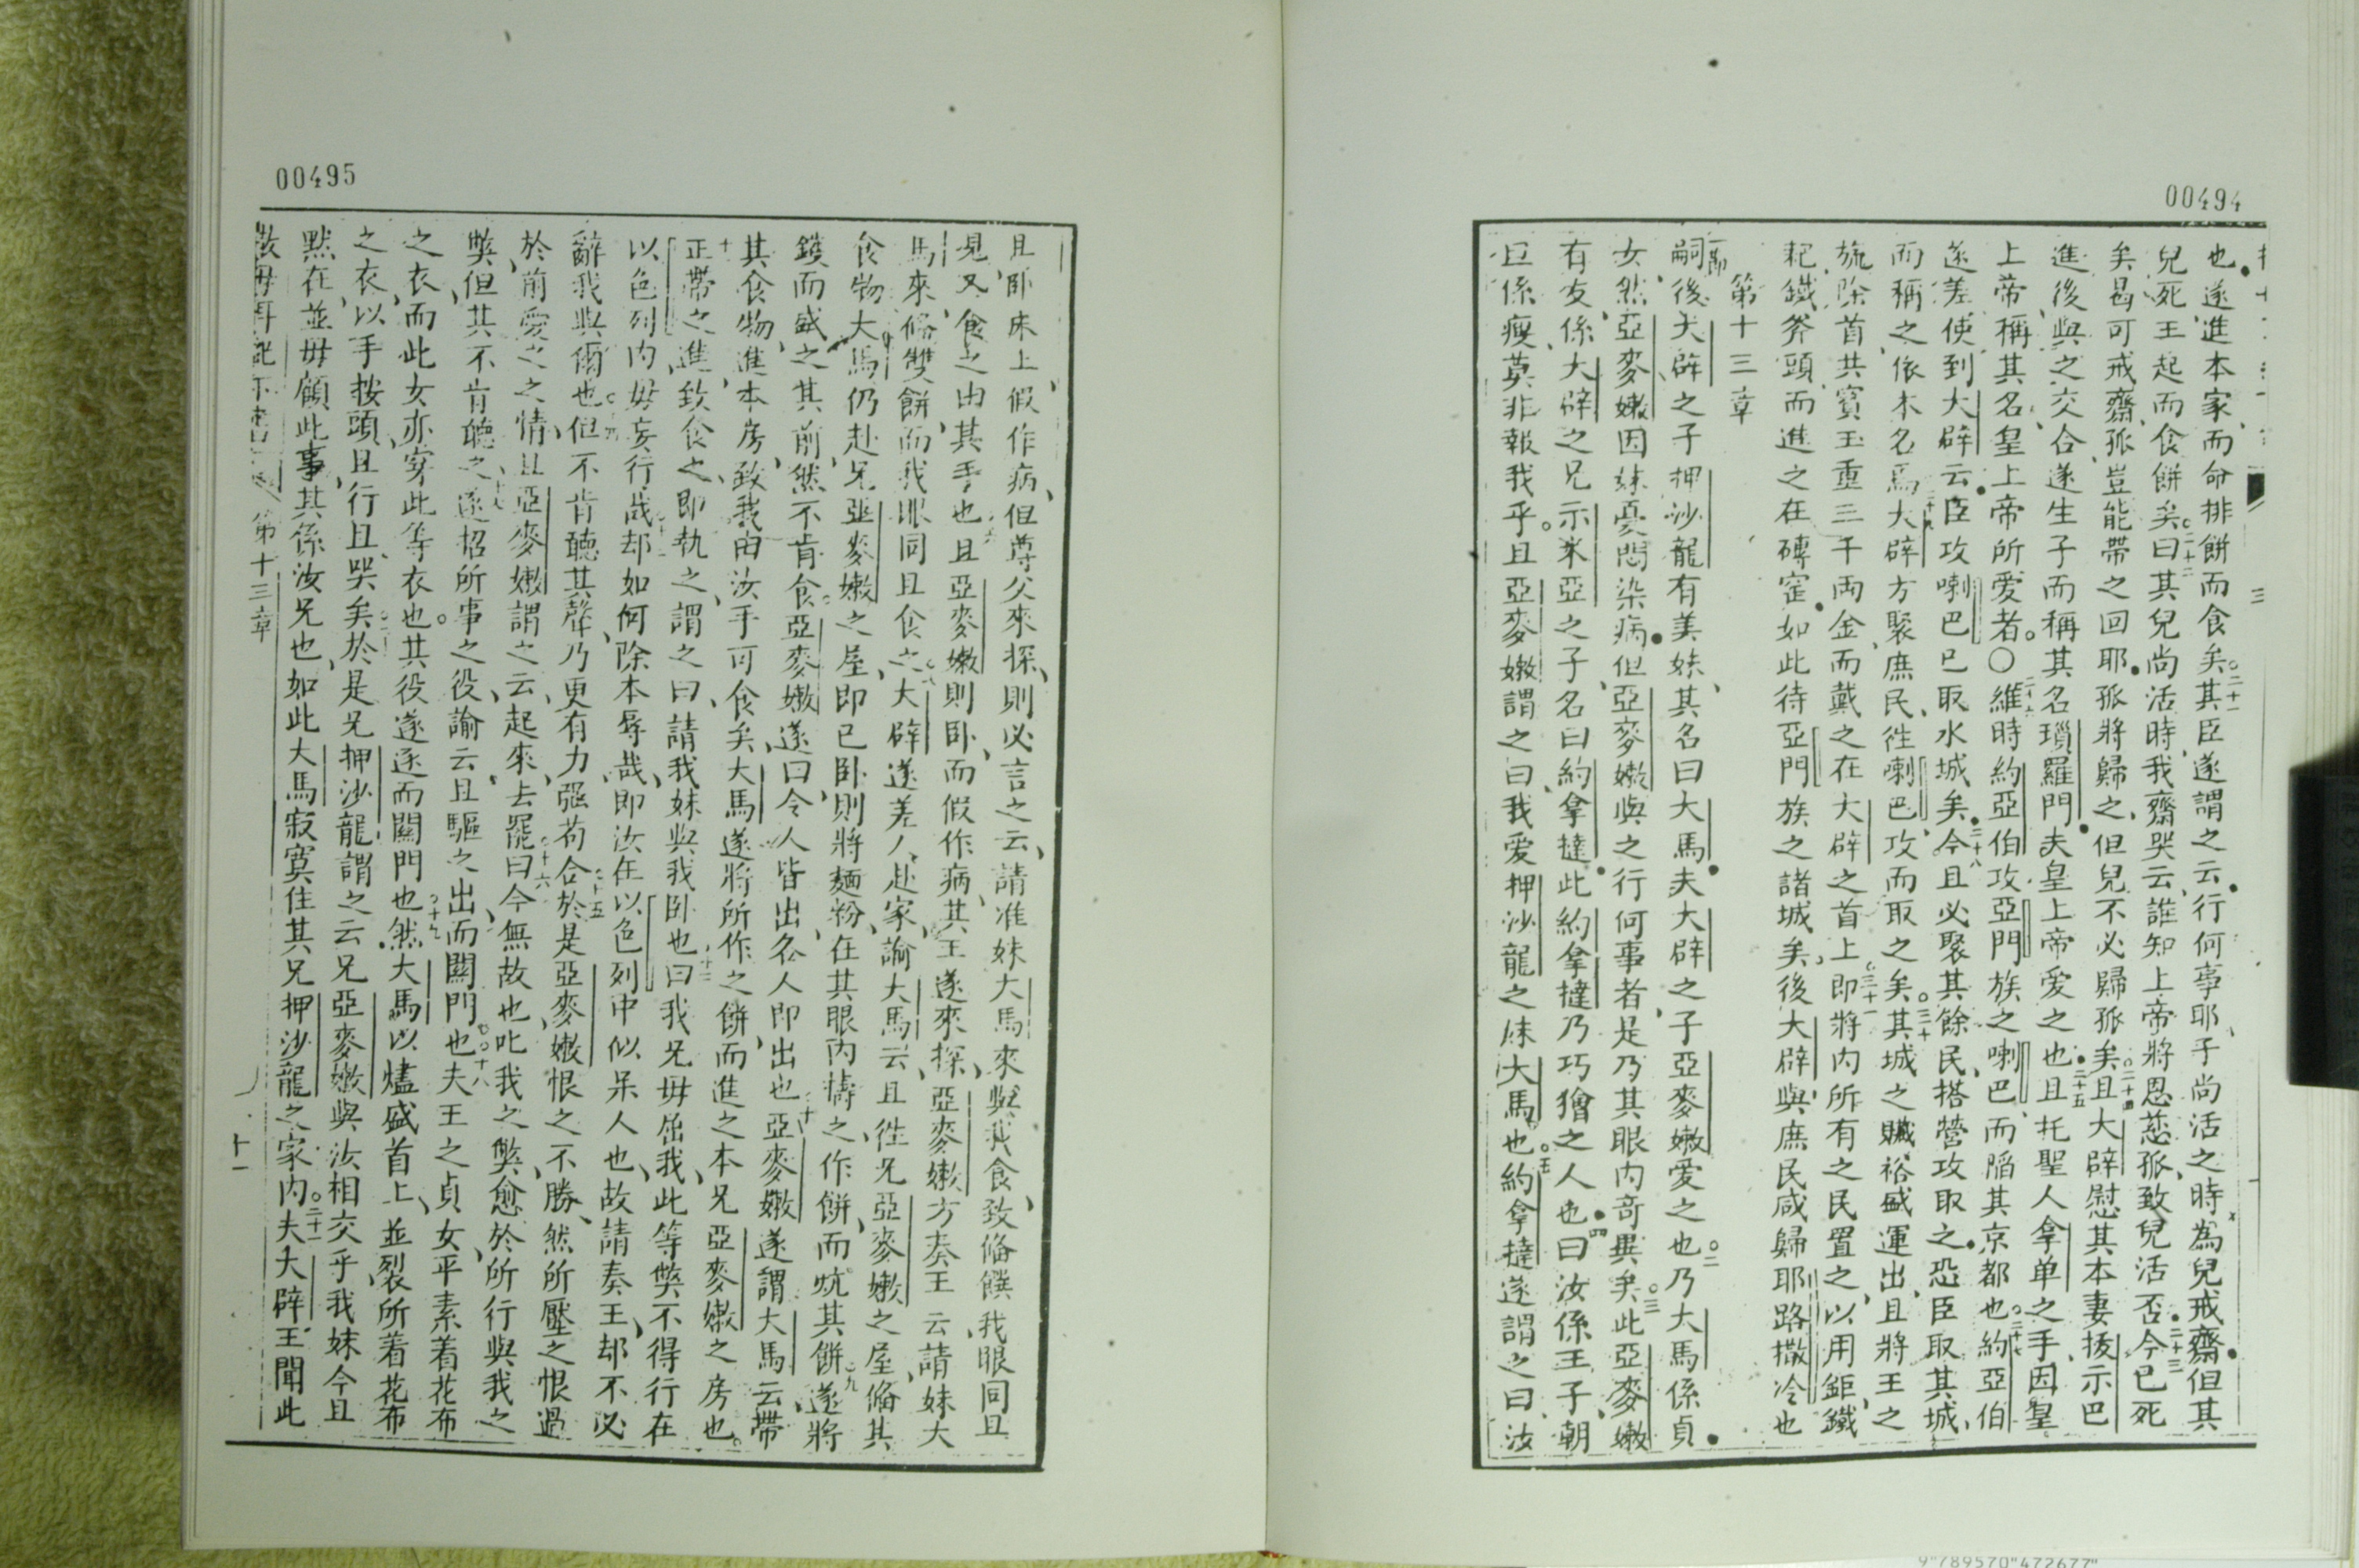 00494
也遂進本家而命排餅而食矣二十一其臣遂謂之云行何事耶子尚活之時為兒戒齋但其
兒死王起而食餅矣二十二曰其兒尚活時我齋哭云誰知上帝將恩慈孤致兒活否二十三今已死
矣曷可戒齋孤豈能帶之回耶孤將歸之但兒不必歸孤矣二十四且大辟慰其本妻拔示巴
進後與之交合遂生子而稱其名瑣羅門夫皇上帝愛之也二十五且托聖人拿单之手因皇
上帝稱其名皇上帝所愛者〇二十六維時約亞伯攻亞門族之喇巴而陷其京都也二十七約亞伯
遂差使到大辟云臣攻喇巴已取水城矣二十八今且必聚其餘民搭營攻取之恐臣取其城
而稱之依本名焉二十九大辟方聚庶民徃喇巴攻而取之矣三十其城之贓裕盛運出且將王之
旒除首共寳玉重三千両金而戴之在大辟之首上三十一即將內所有之民置之以用鉅鐵
耙鐵斧頭而進之在磚窑如此待亞門族之諸城矣後大辟與庶民咸歸耶路撒冷也
第十三章
一節嗣後大辟之子押沙龍有美妹其名曰大馬夫大辟之子亞麥嫩愛之也二乃大馬係貞
女然亞麥嫩因妹憂悶染病但亞麥嫩與之行何事者是乃其眼內竒異矣三此亞麥嫩
有友係大辟之兄示米亞之子名曰約拿撻此約拿撻乃巧獪之人也四曰汝係王子朝
巨係瘦莫非報我乎且亞麥嫩謂之曰我爱押沙龍之妹大馬也五約拿撻遂謂之曰汝
00495
且卧床上假作病但尊父來探則必言之云請准妹大馬來與我食致俻饌我眼同且
見又食之由其手也六且亞麥嫩則卧而假作病其王遂來探亞麥嫩方奏王云請妹大
馬來俻雙餅而我眼同且食之七大辟遂差人赴家諭大馬云且徃兄亞麥嫩之屋俻其
食物八大馬仍赴兄亞麥嫩之屋即已卧則將麵粉在其眼內擣之作餅而炕其餅九遂將
鑊而盛之其前然不肯食亞麥嫩遂曰令人皆出各人即出也十亞麥嫩遂謂大馬云帶
其食物進本房致我由汝手可食矣大馬遂將所作之餅而進之本兄亞麥嫩之房也
十一正帶之進致食之即執之謂之曰請我妹與我卧也十二曰我兄毋屈我此等獘不得行在
以色列內毋妄行哉十三却如何除本辱哉即汝在以色列中似呆人也故請奏王却不必
辭我與爾也十四但不肯聽其聲乃更有力强苟合於是十五亞麥嫩恨之不勝然所壓之恨過
於前愛之之情且亞麥嫩謂之云起來去罷十六曰今無故也叱我之獘愈於所行與我之
獘但其不肯聽之十七遂招所事之役諭云且驅之出而關門也十八夫王之貞女平素着花布
之衣而此女亦穿此等衣也其役遂逐而關門也十九然大馬以燼盛首上並裂所着花布
之衣以手按頭且行且哭矣二十於是兄押沙龍謂之云兄亞麥嫩與汝相交乎我妹今且
默在並毋顧此事其係汝兄也如此大馬寂寞住其兄押沙龍之家內二十一夫大辟王聞此
第十三章
十一
9"789570"472677"